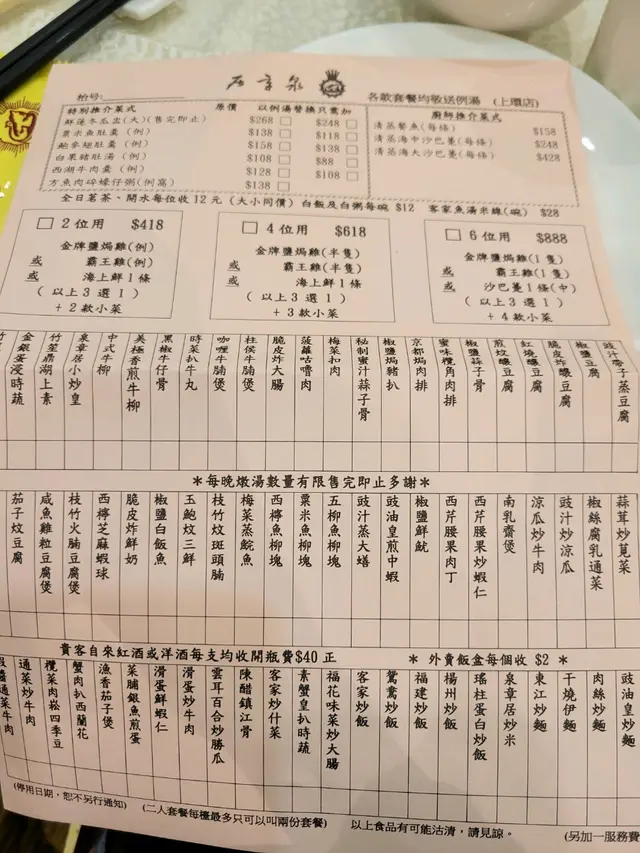 枱号:
石章泉
各款套餐均敬送例湯 (上環店)
特別推介菜式 原價 以例湯替換只需加
鮮蓮冬瓜盅(大)(售完即止) $268 $248
粟米魚肚羹 (例) $138 $118
鮑參翅肚羹 (例) $158 $138
白果豬肚湯 (例) $108 $88
西湖牛肉羹 (例) $128 $108
方魚肉碎蠔仔粥(例窩) $138
廚師推介菜式
$158
清蒸海中沙巴躉(每條) $248
清蒸海大沙巴躉(每條) $428
全日茗茶、開水每位收12元 (大小同價) 白飯及白粥每碗 $12 客家魚湯米線(碗) $28
2位用 $418
金牌鹽焗雞(例)
或 霸王雞(例)
或 海上鮮1條
( 以上3選1 )
+ 2款小菜
4位用 $618
金牌鹽焗雞(半隻)
或 霸王雞(半隻)
或 海上鮮1條
( 以上3選1 )
+ 3款小菜
6位用 $888
金牌鹽焗雞(1隻)
或 霸王雞(1隻)
或 沙巴躉1條(中)
( 以上3選1 )
+ 4款小菜
豉汁帶子蒸豆腐
椒鹽豆腐
脆皮炸釀豆腐
紅燒釀豆腐
煎炆釀豆腐
椒鹽蒜子骨
蜜味欖角肉排
京都焗肉排
椒鹽焗豬扒
秘制蜜汁蒜子骨
梅菜扣肉
菠蘿咕嚕肉
脆皮炸大腸
柱侯牛腩煲
咖喱牛腩煲
時菜扒牛丸
黑椒牛仔骨
美極香煎牛柳
中式牛柳
泉章居小炒皇
竹笙鼎湖上素
金銀蛋浸時蔬
*每晚燉湯數量有限售完即止多謝*
蒜茸炒莧菜
椒絲腐乳通菜
豉汁炒涼瓜
涼瓜炒牛肉
南乳齋煲
西芹腰果炒蝦仁
西芹腰果肉丁
椒鹽鮮魷
豉油皇煎中蝦
豉汁蒸大鱔
五柳魚柳塊
粟米魚柳塊
西檸魚柳塊
梅菜蒸鯇魚
枝竹炆斑頭腩
玉鮑炆三鮮
椒鹽白飯魚
脆皮炸鮮奶
西檸芝麻蝦球
枝竹火腩豆腐煲
咸魚雞粒豆腐煲
茄子炆豆腐
貴客自來紅酒或洋酒每支均收開瓶費$40正 * 外賣飯盒每個收 $2 *
豉油皇炒麵
肉絲炒麵
干燒伊麵
東江炒麵
泉章居炒米
瑤柱蛋白炒飯
楊州炒飯
福建炒飯
鴛鴦炒飯
客家炒飯
福花味菜炒大腸
素蟹皇扒時蔬
客家炒什菜
陳醋鎮江骨
雲耳百合炒勝瓜
滑蛋炒牛肉
滑蛋鮮蝦仁
菜脯銀魚煎蛋
漁香茄子煲
蟹肉扒西蘭花
欖菜肉崧四季豆
通菜炒牛肉
(停用日期,恕不另行通知) (二人套餐每檯最多只可以叫兩份套餐) 以上食品有可能沽清,請見諒。 (另加一服務費